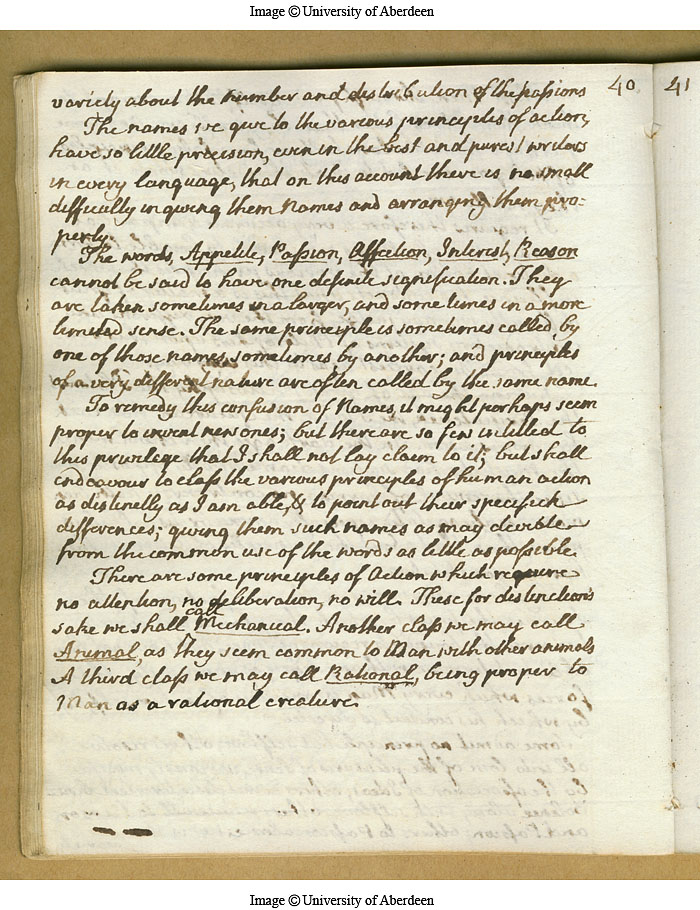 Image © University of Aberdeen
40 41
variety about the number and distribution of the passions
The names we give to the various principles of action,
have so little precision, even in the best and purest writers
in every language, that on this account there is no small
difficulty in giving them Names and arranging them pro=
perly.
The words, Appetite, Passion, Affection, Interest, Reason
cannot be said to have one definite signification. They
are taken sometimes in a larger, and sometimes in a more
limited sense. The same principle is sometimes called, by
one of those names, sometimes by another; and principles
of a very different nature are often called by the same name.
To remedy this confusion of Names, it might perhaps seem
proper to invent new ones; but there are so few intitled to
this privilege that I shall not lay claim to it; but shall
endeavour to class the various principles of human action
as distinctly as I am able, & to point out their specifick
differences; giving them such names as may deviate
from the common use of the words as little as possible.
There are some principles of Action which require
no attention, no deliberation, no will. These for distinction's
sake we shall call Mechanical. Another class we may call
Animal, as they seem common to Man with other animals
A third class we may call Rational, being proper to
Man as a rational creature.
Image © University of Aberdeen